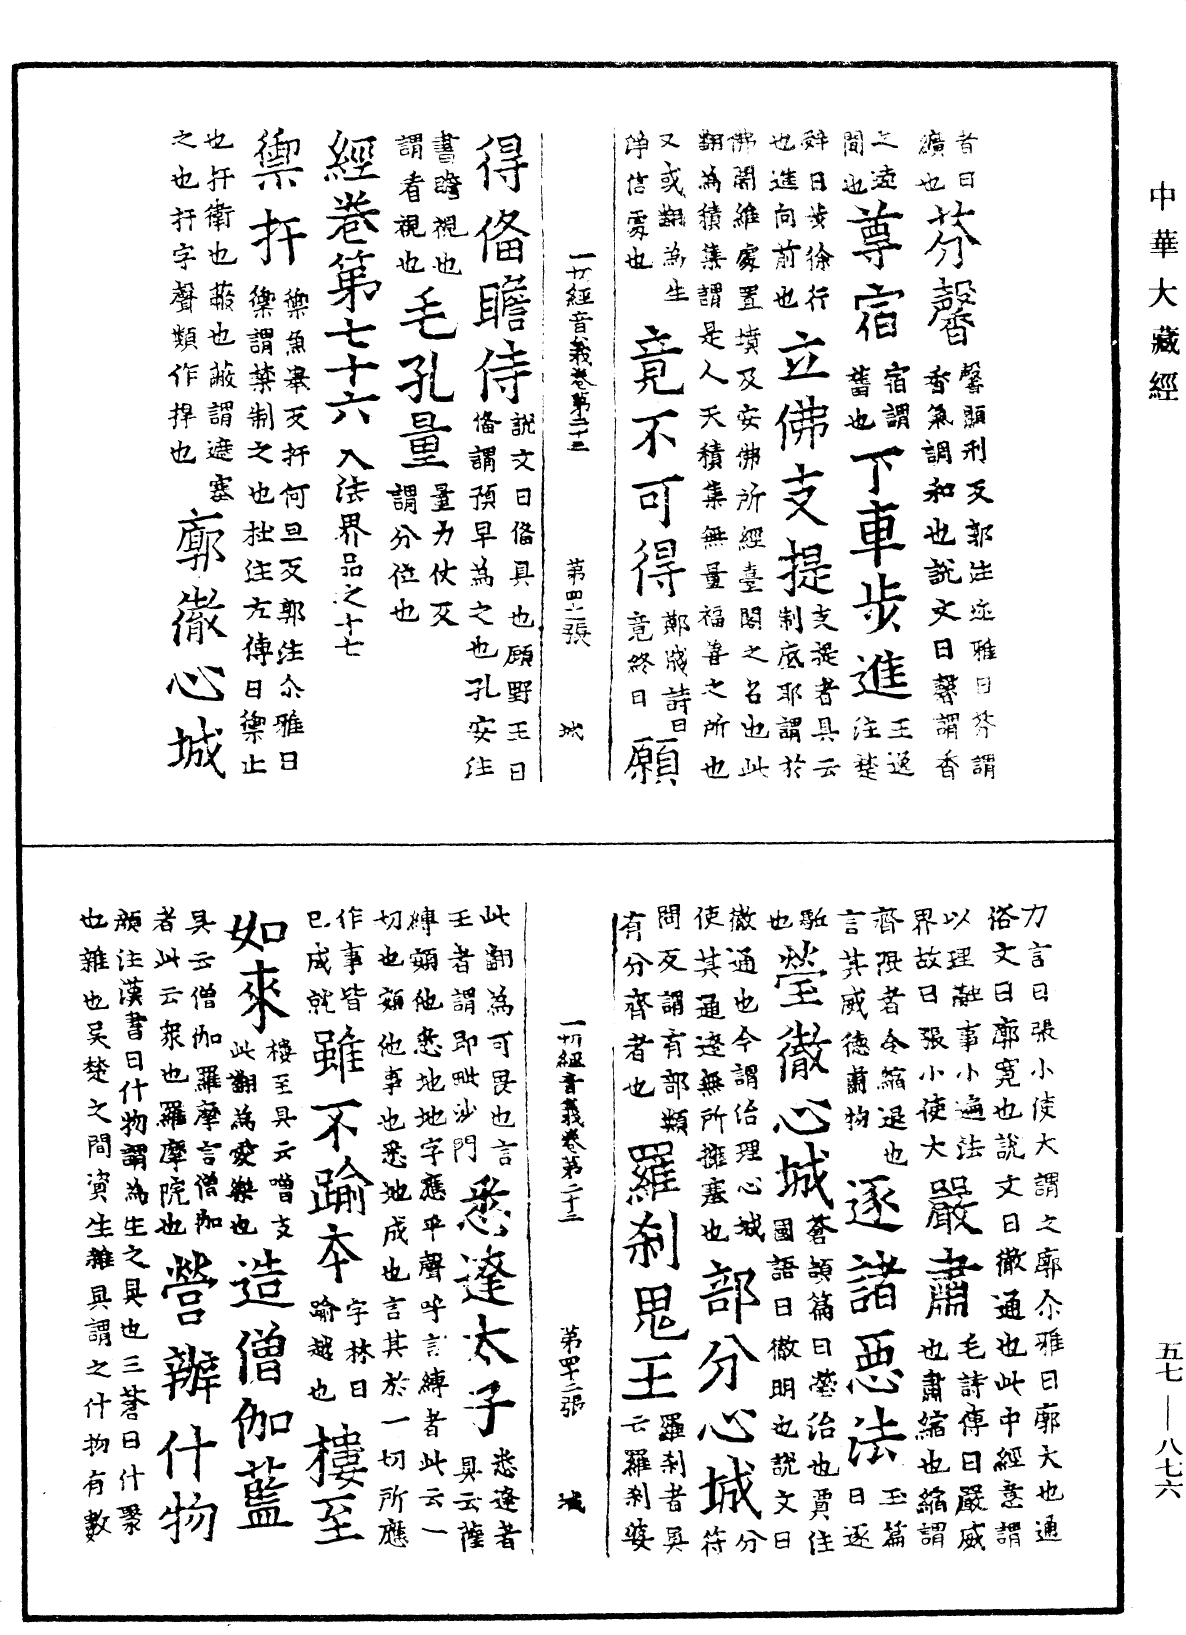 中華大藏經
者曰
纊也芬馨馨顯刑反郭注尒雅曰芬謂香氣調和也說文曰馨謂香
之遠
間也尊宿宿謂舊也下車步進王逸注楚
辭曰步徐行
也進向前也立佛支提支提者具云制底耶謂於
佛闍維處置墳及安佛所經臺閣之名也此
翻為積集謂是人天積集無量福善之所也
又或翻為生
淨信處也竟不可得鄭牋詩曰竟終曰願
一切經音義卷第二十三 第四十一張 城
得俻瞻侍說文曰俻具也顧野王曰俻謂預早為之也孔安注
書瞻視也
謂看視也毛孔量量力仗反謂分位也
經卷第七十六入法界品之十七
禦扞禦魚舉反扞何旦反郭注尒雅曰禦謂禁制之也杜注左傳曰禦止
也扞衛也蔽也蔽謂遮塞
之也扞字聲類作捍也廓徹心城
力言曰張小使大謂之廓尒雅曰廓大也通
俗文曰廓寬也說文曰徹通也此中經意謂
以理融事小遍法
界故曰張小使大嚴肅毛詩傳曰嚴威也肅縮也縮謂
齊限者令縮退也
言其威德肅物逐諸惡法玉篇曰逐
駈
也瑩徹心城蒼頡篇曰瑩治也賈注國語曰徹明也說文曰
徹通也今謂治理心城
使其通達無所擁塞也部分心城分符
問反謂有部類
有分齊者也羅剎鬼王羅剎者具云羅剎婆
一切經音義卷第二十三 第四十二張 城
此翻為可畏也言
王者謂即毗沙門悉達太子悉達者具云薩
縛頞他悉地地字應平聲呼言縛者此云一
切也頞他事也悉地成也言其於一切所應
作事皆
已成就雖不踰本字林曰踰越也樓至
如來樓至具云嚕支此翻為愛樂也造僧伽藍
具云僧伽羅摩言僧伽
者此云衆也羅摩院也營辦什物
顏注漢書曰什物謂為生之具也三蒼曰什聚
也雜也吳楚之間資生雜具謂之什物有數
五七—八七六